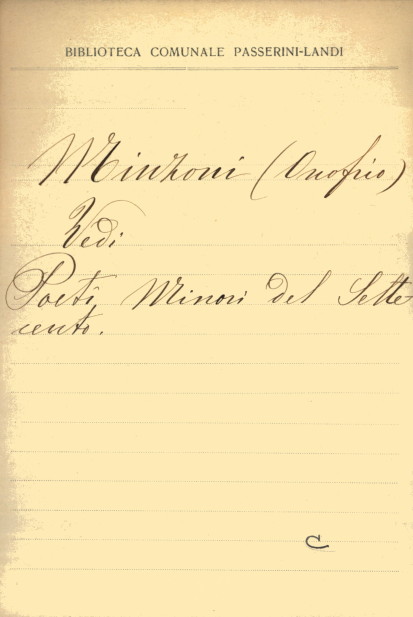 BIBLIOTECA COMUNALE PASSERINI-LANDI
Minzoni (Onofrio)
Vedi
Poeti Minori del Sette
cento.
C